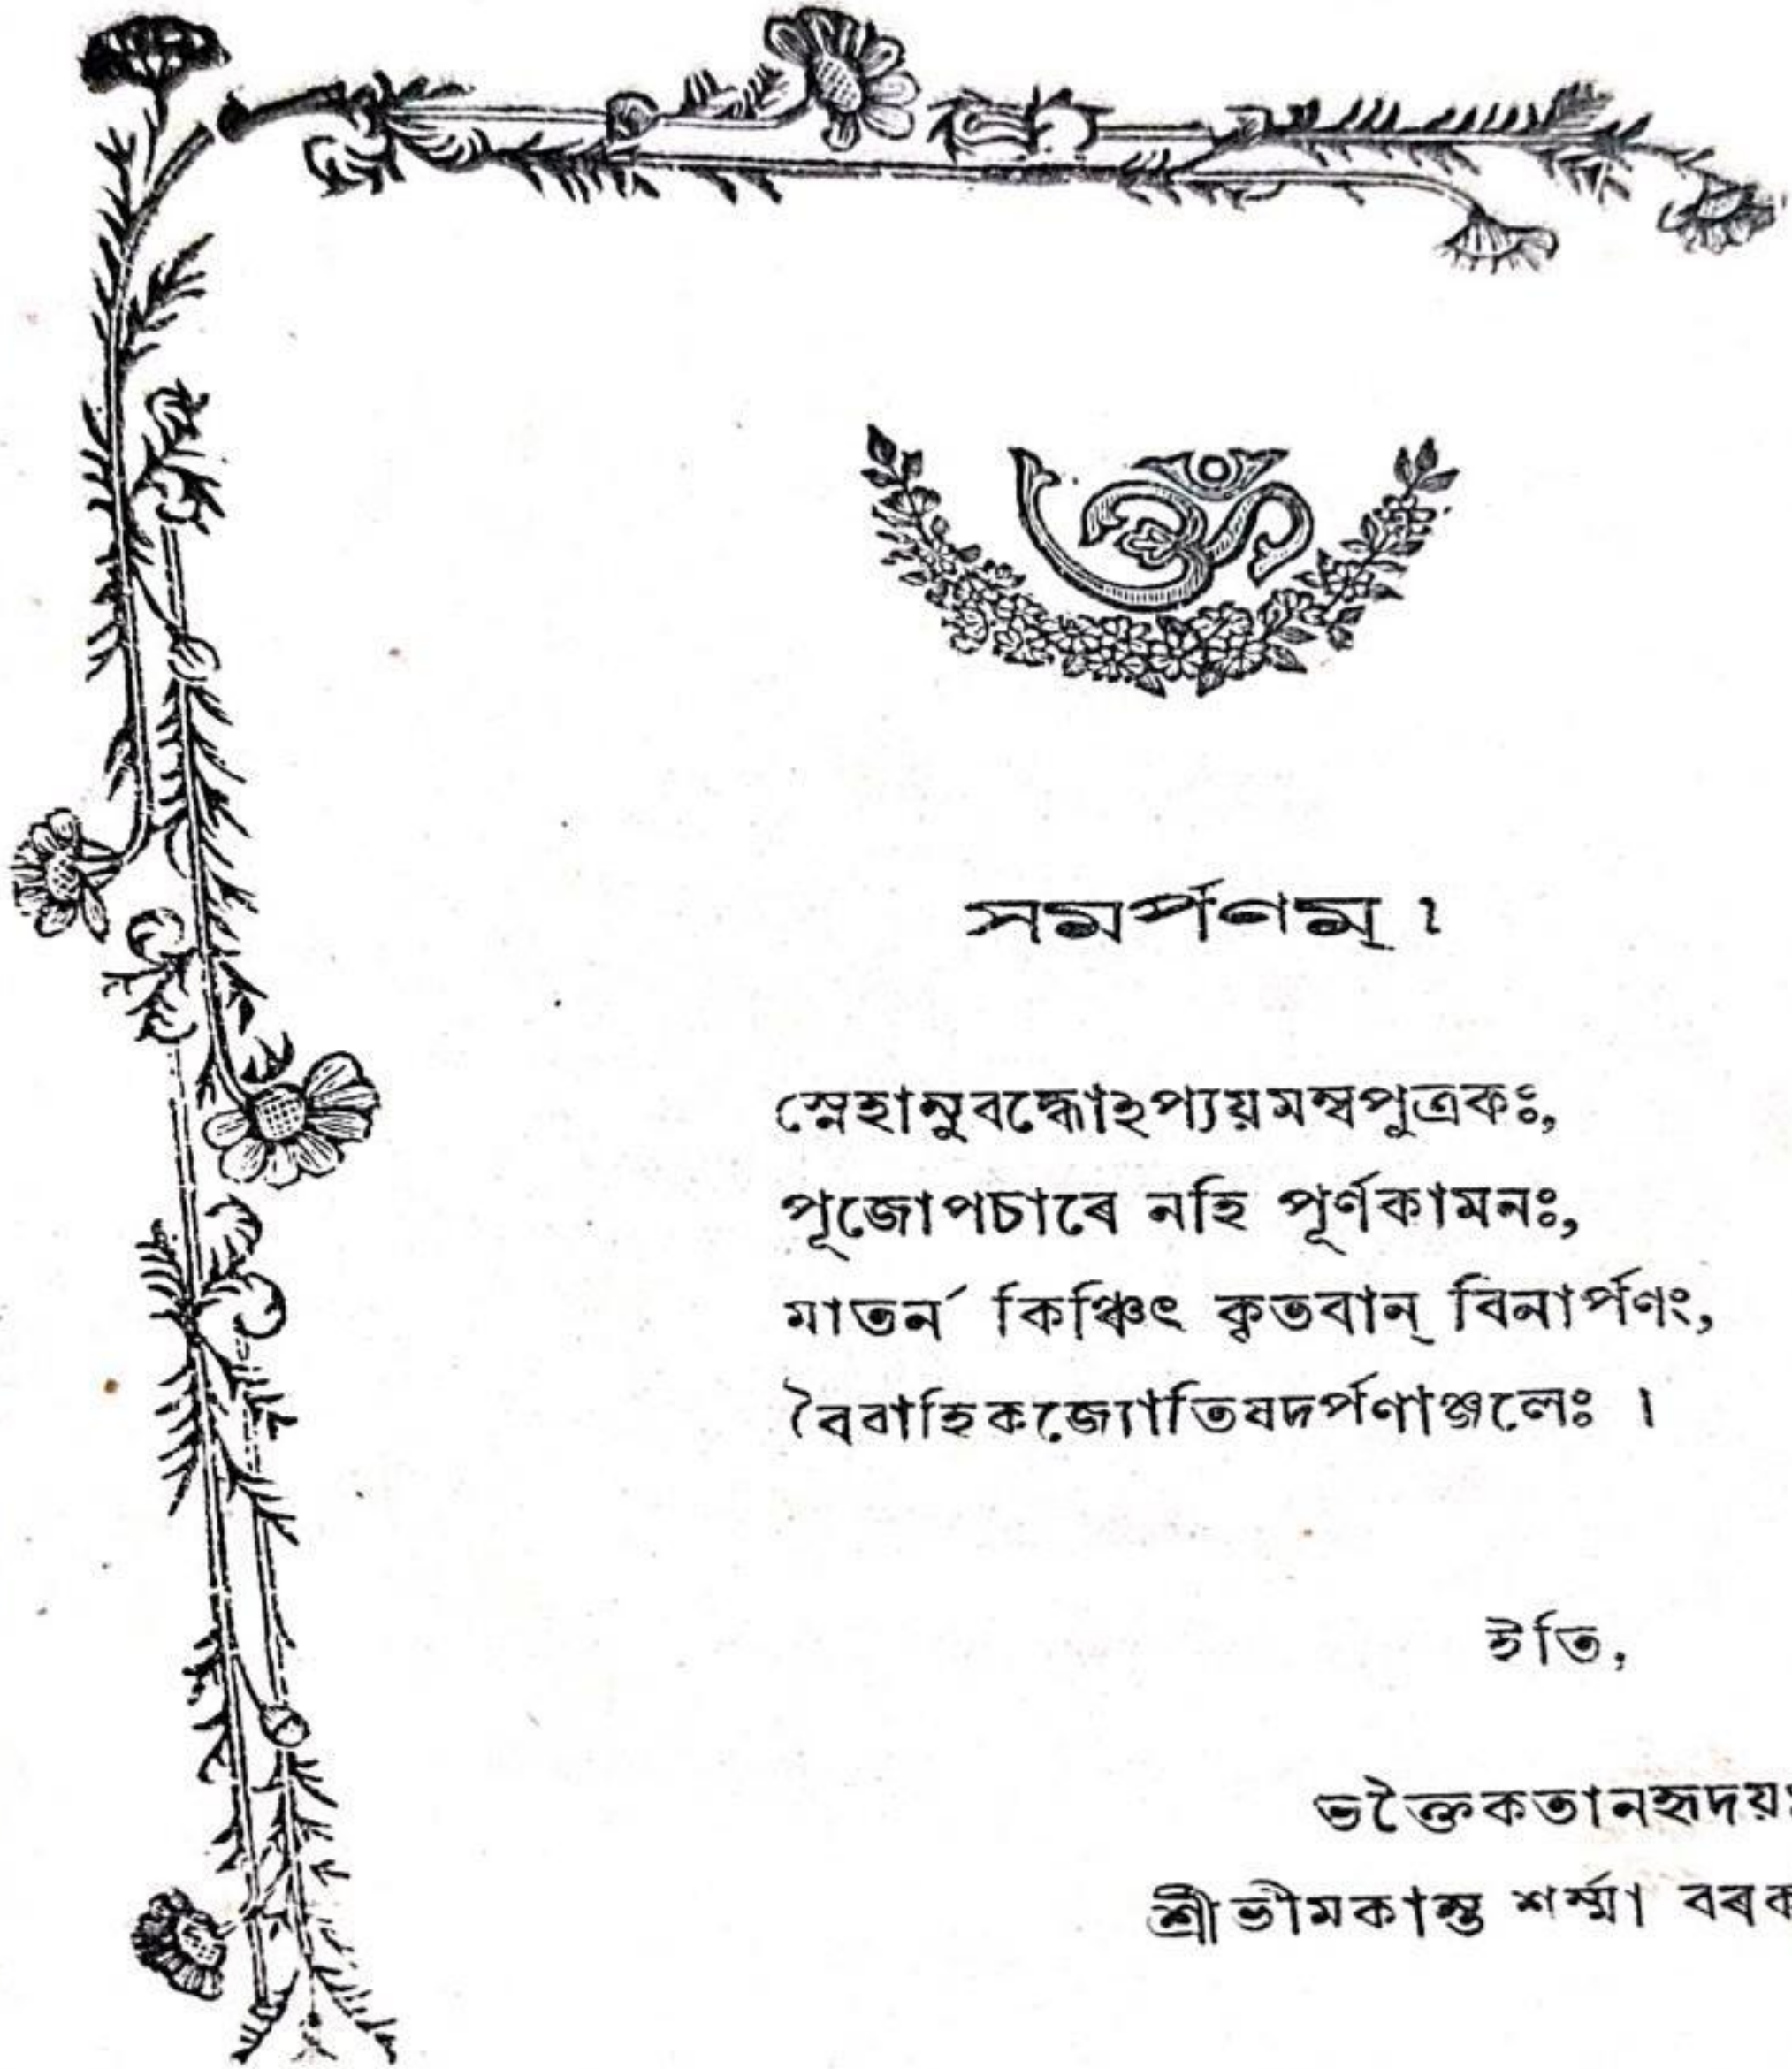 ওঁ
সমৰ্পণম্ ।
স্নেহানুবদ্ধোঽপ্যয়মম্বপুত্ৰকঃ,
পূজোপচাৰে নহি পূৰ্ণকামনঃ,
মাতৰ্ন কিঞ্চিৎ কৃতবান্ বিনাৰ্পণং,
বৈবাহিকজ্যোতিষদৰ্পণাঞ্জলেঃ ।
ইতি,
ভক্ত্যৈকতানহৃদয়ঃ
শ্ৰীভীমকান্ত শৰ্ম্মা